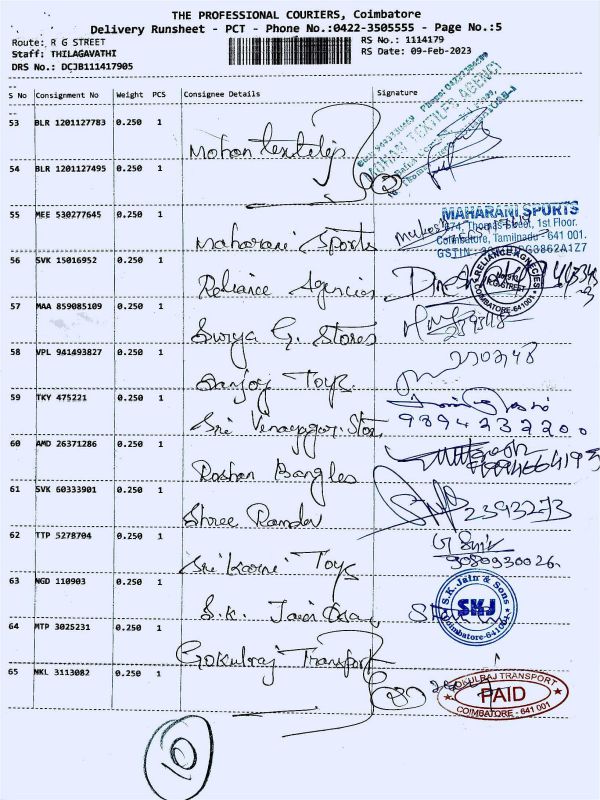 THE PROFESSIONAL COURIERS, Coimbatore
Delivery Runsheet - PCT - Phone No.:0422-3505555 - Page No.:5
Route: R G STREET
RS No.: 1114179
Staff: THILAGAVATHI
RS Date: 09-Feb-2023
DRS No.: DCJB111417905
S No Consignment No Weight PCS Consignee Details Signature
53 BLR 1201127783 0.250 1 Mohan textiles
MOHAN TEXTILE'S AGENCY
54 BLR 1201127495 0.250 1
55 MEE 530277645 0.250 1 Maharani Sports
MAHARANI SPORTS
Thomas Street, 1st Floor,
Coimbatore, Tamilnadu - 641 001.
56 SVK 15016952 0.250 1 Reliance Agencies
RELIANCE AGENCIES
COIMBATORE-641001
57 MAA 859085109 0.250 1 Surya G. Stores
58 VPL 941493827 0.250 1 Sanjoy Toys
59 TKY 475221 0.250 1 Sri Vinayagar Store
9894232200
60 AMD 26371286 0.250 1 Roshan Bangles
61 SVK 60333901 0.250 1 Shree Ramdev
2393273
62 TTP 5278704 0.250 1 Sri Karni Toys
9080930026
63 NGD 110903 0.250 1 S.K. Jain
S.K. Jain & Sons
SKJ
Coimbatore-641001
64 MTP 3025231 0.250 1 Gokulraj Transport
65 NKL 3113082 0.250 1
GOKULRAJ TRANSPORT
PAID
COIMBATORE - 641 001
10